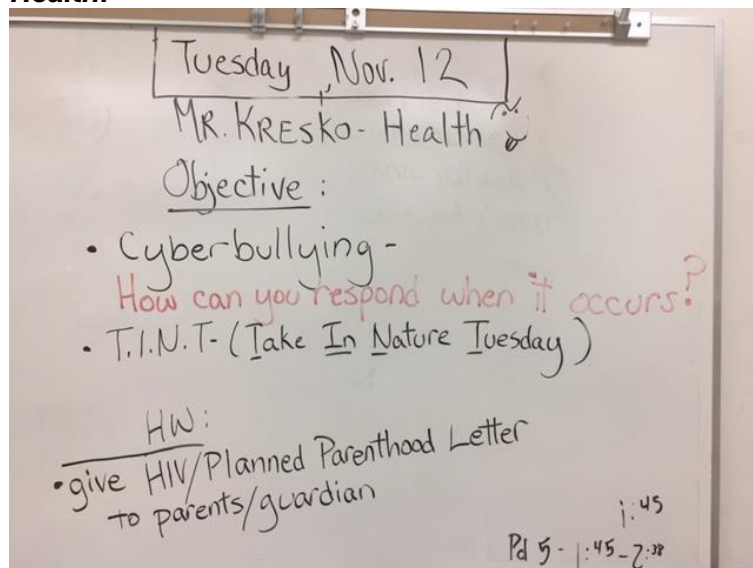 Health:
Tuesday, Nov. 12
MR. KRESKO - Health
Objective:
• Cyberbullying -
How can you respond when it occurs?
• T.I.N.T - (Take In Nature Tuesday)
HW:
• give HIV/Planned Parenthood Letter
to parents/guardian
1:45
Pd 5 - 1:45-2:38